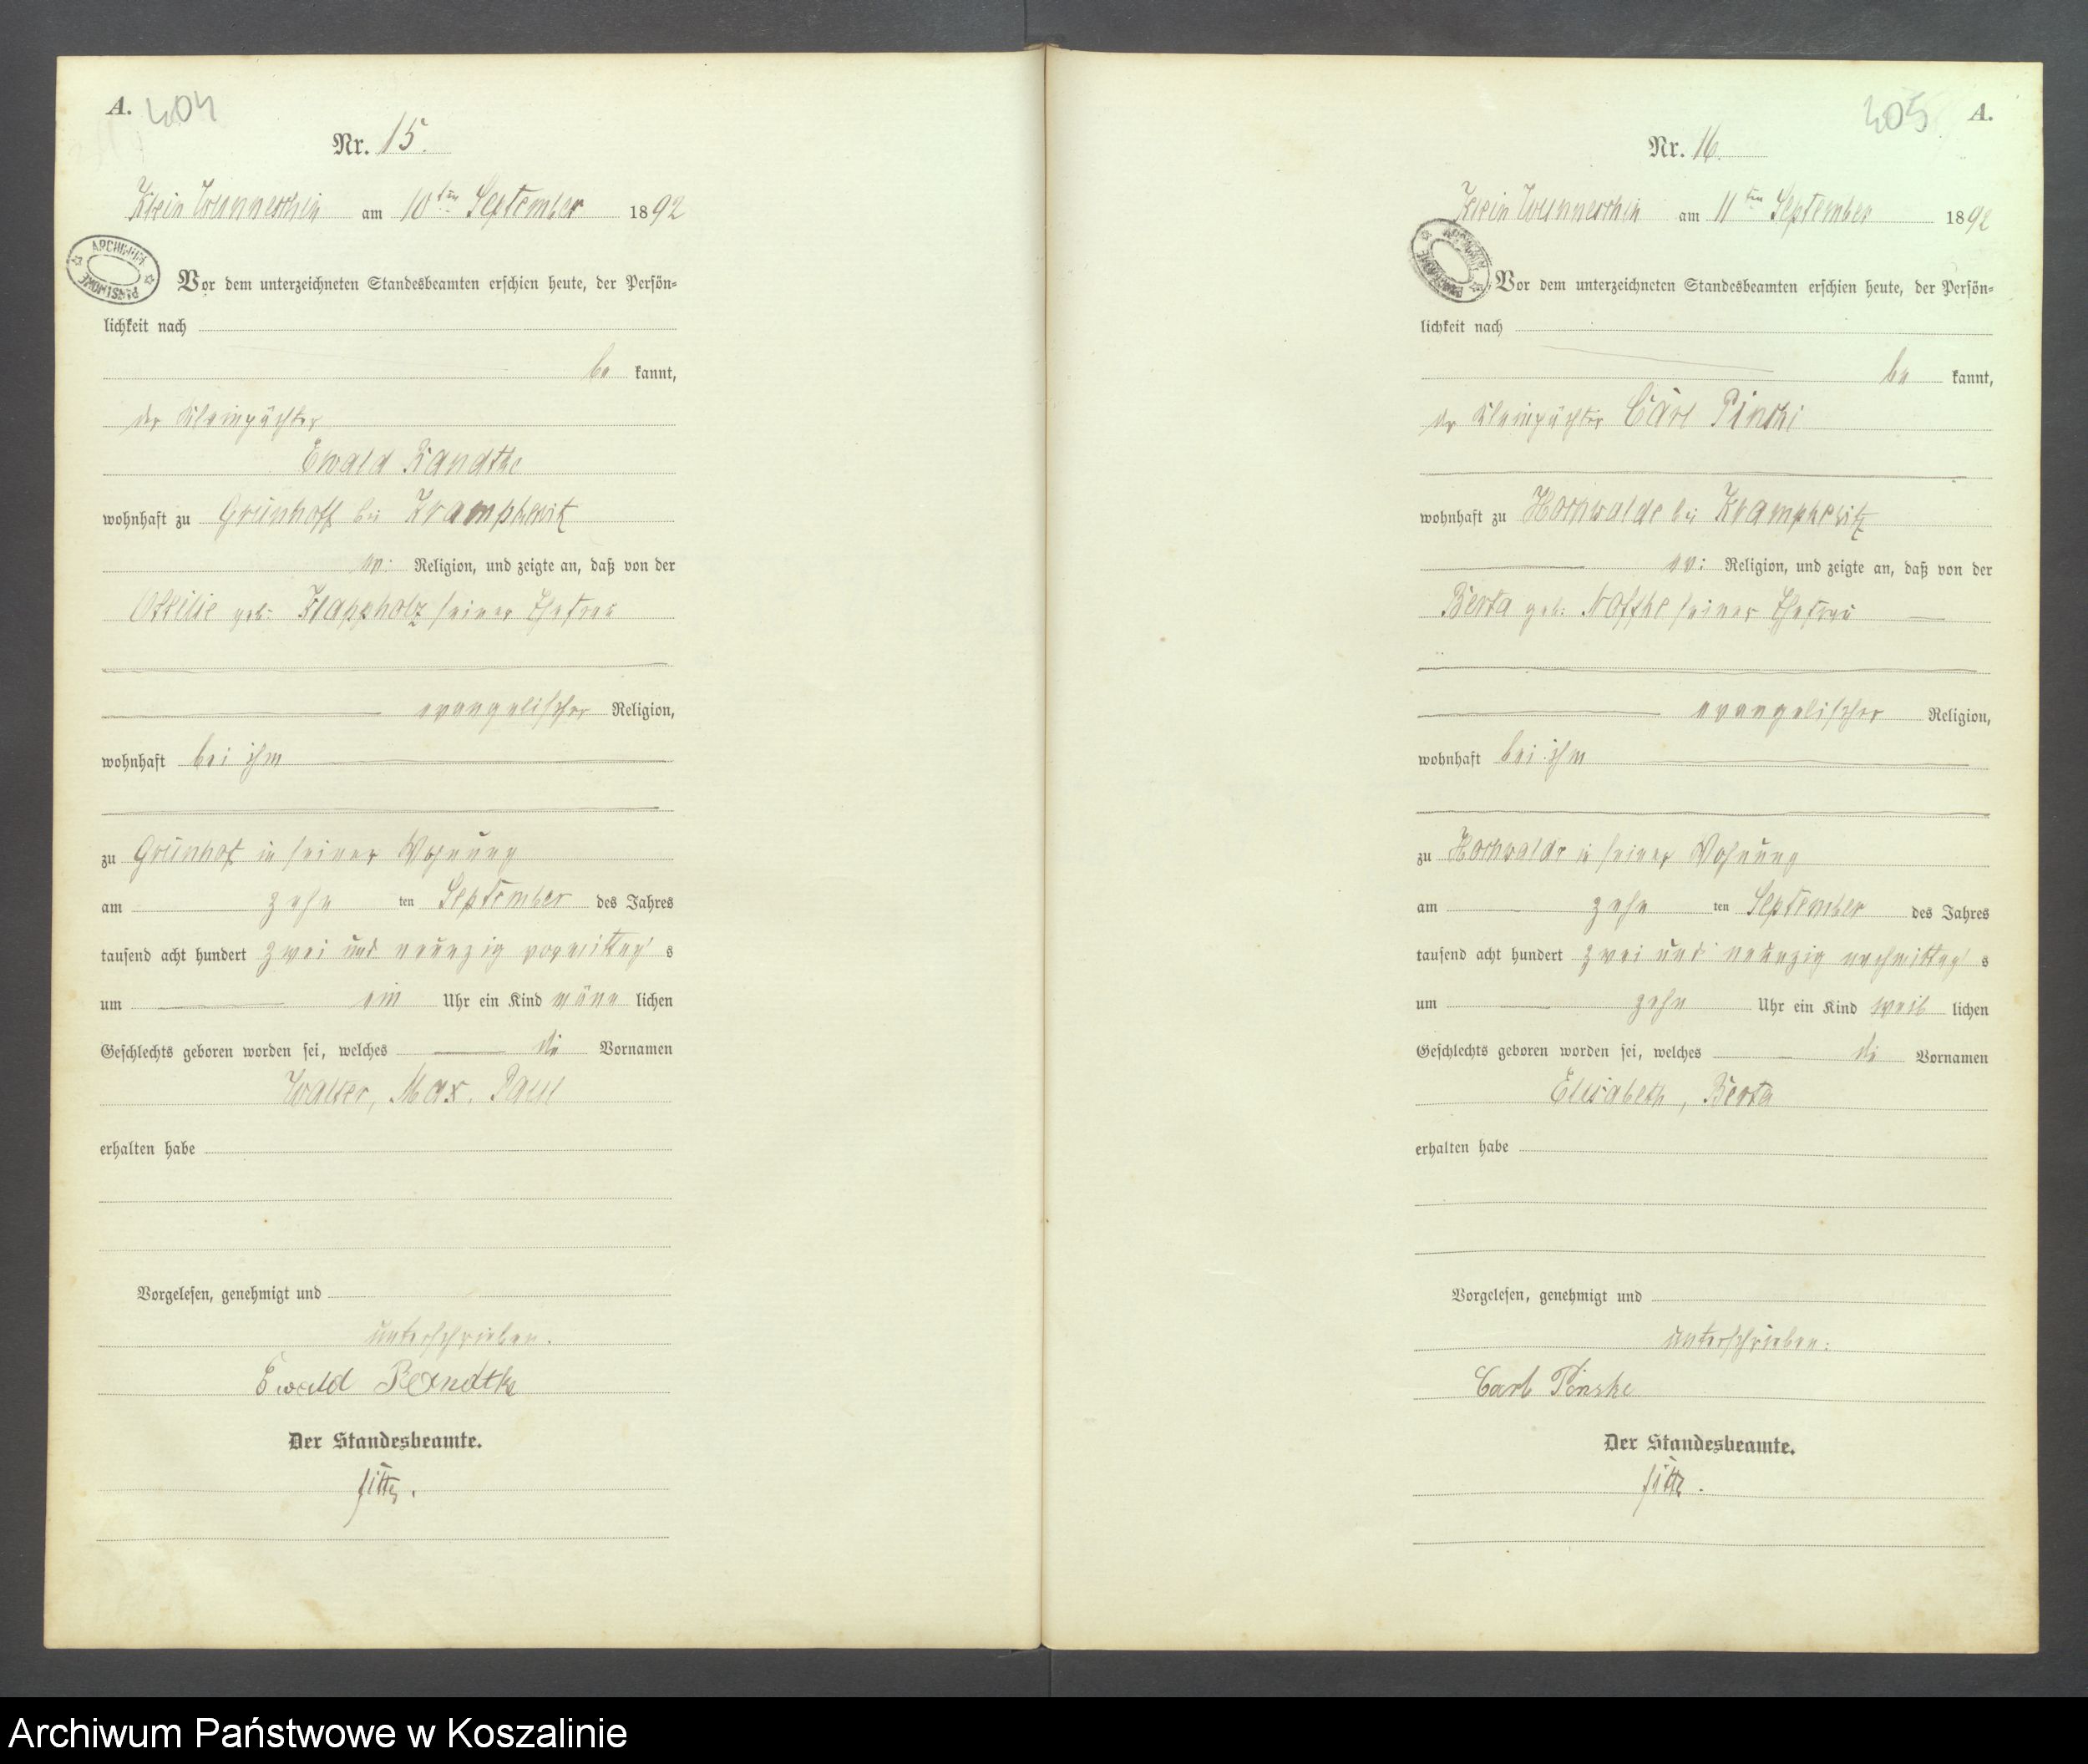 A. 404
Nr. 15.
Klein Wunneschin am 10ten September 1892
ARCHIWUM PAŃSTWOWE
Vor dem unterzeichneten Standesbeamten erschien heute, der Persön-
lichkeit nach
be kannt,
der Kleinpächter
Ewald Randtke
wohnhaft zu Grünhoff bei Kramphewitz
ev: Religion, und zeigte an, daß von der
Ottilie geb: Klappholz seiner Ehefrau
evangelischer Religion,
wohnhaft bei ihm
zu Grünhof in seiner Wohnung
am zehn ten September des Jahres
tausend acht hundert zwei und neunzig vormittag s
um ein Uhr ein Kind männ lichen
Geschlechts geboren worden sei, welches die Vornamen
Walter, Max, Paul
erhalten habe
Vorgelesen, genehmigt und
unterschrieben.
Ewald Randtke
Der Standesbeamte.
405 A.
Nr. 16.
Klein Wunneschin am 11ten September 1892
ARCHIWUM PAŃSTWOWE
Vor dem unterzeichneten Standesbeamten erschien heute, der Persön-
lichkeit nach
be kannt,
der Kleinpächter Carl Pinski
wohnhaft zu Hochwalde bei Kramphewitz
ev: Religion, und zeigte an, daß von der
Berta geb: Noffke seiner Ehefrau
evangelischer Religion,
wohnhaft bei ihm
zu Hochwalde in seiner Wohnung
am zehn ten September des Jahres
tausend acht hundert zwei und neunzig nachmittag s
um zehn Uhr ein Kind weib lichen
Geschlechts geboren worden sei, welches die Vornamen
Elisabeth, Berta
erhalten habe
Vorgelesen, genehmigt und
unterschrieben:
Carl Pinske
Der Standesbeamte.
Archiwum Państwowe w Koszalinie